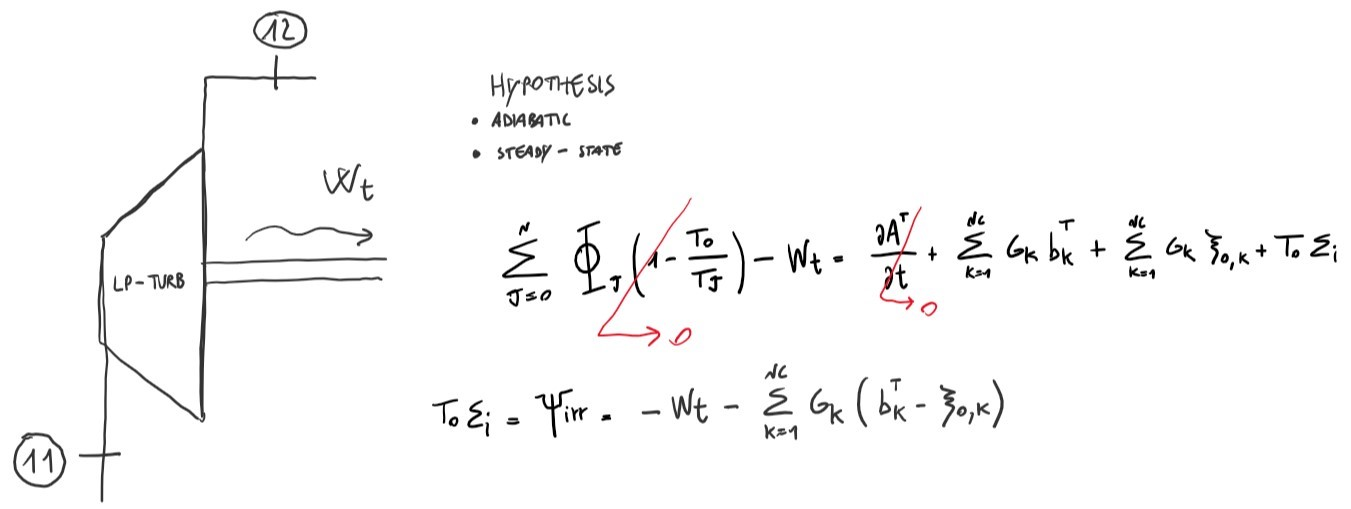 12
HYPOTHESIS
• ADIABATIC
• STEADY - STATE
Wt
LP-TURB
∑_{J=0}^{N} Φ_J (1 - T₀/T_J) - Wt = ∂Aᵀ/∂t + ∑_{K=1}^{NC} G_K b_K^T + ∑_{K=1}^{NC} G_K ξ_{0,K} + T₀ Σ_i
→ 0
→ 0
T₀ Σ_i = Ψ_irr = - Wt - ∑_{K=1}^{NC} G_K (b_K^T - ξ_{0,K})
11